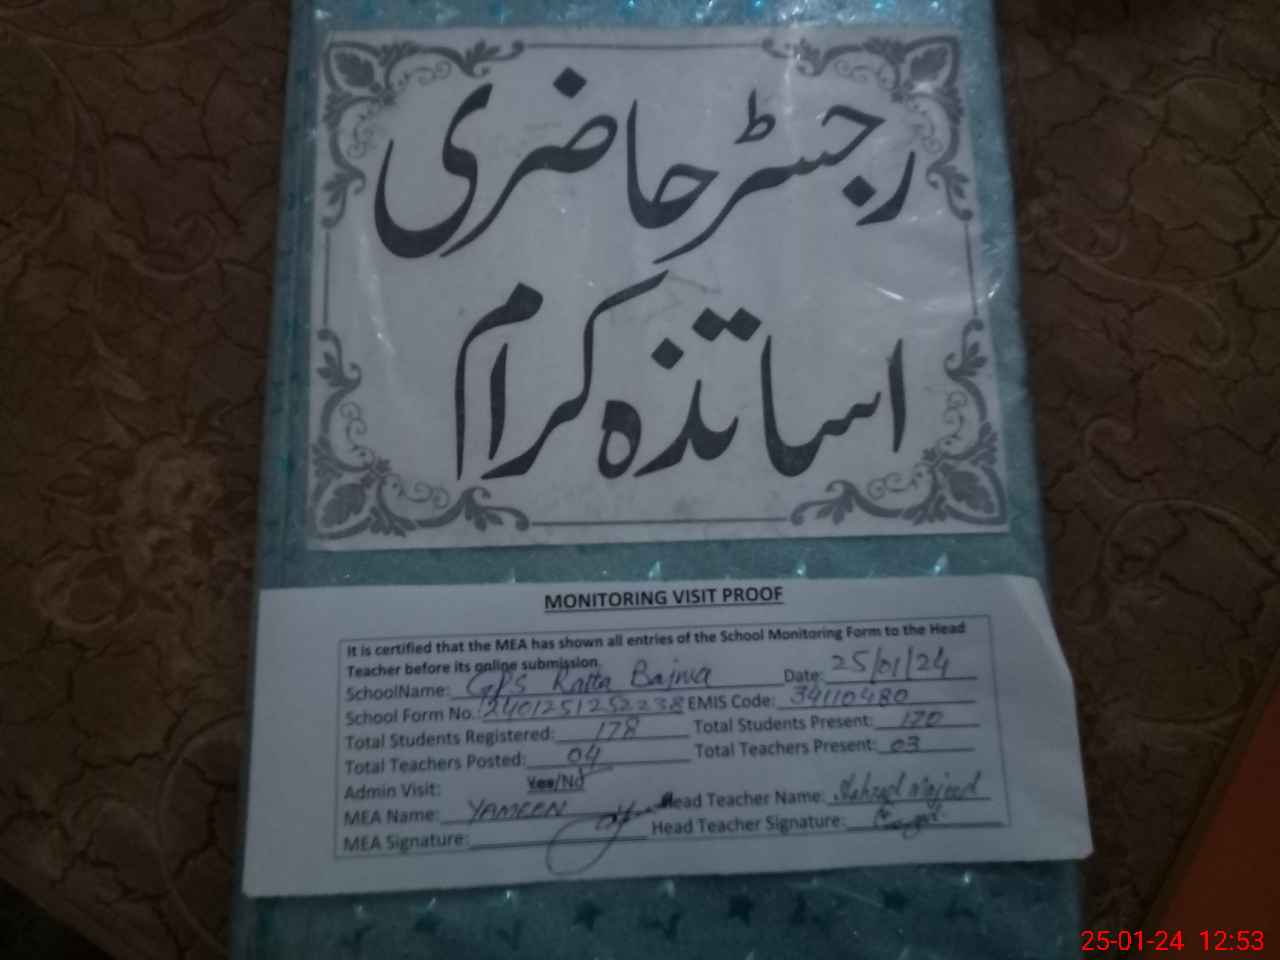 رجسٹر حاضری
اساتذہ کرام
MONITORING VISIT PROOF
It is certified that the MEA has shown all entries of the School Monitoring Form to the Head
Teacher before its online submission.
SchoolName: GPS Ratta Bajwa Date: 25/01/24
School Form No. 2401251252238 EMIS Code: 34110480
Total Students Registered: 178 Total Students Present: 170
Total Teachers Posted: 04 Total Teachers Present: 03
Admin Visit: Yes/No
MEA Name: YAMEEN Head Teacher Name: Majeed
MEA Signature: Head Teacher Signature:
25-01-24 12:53